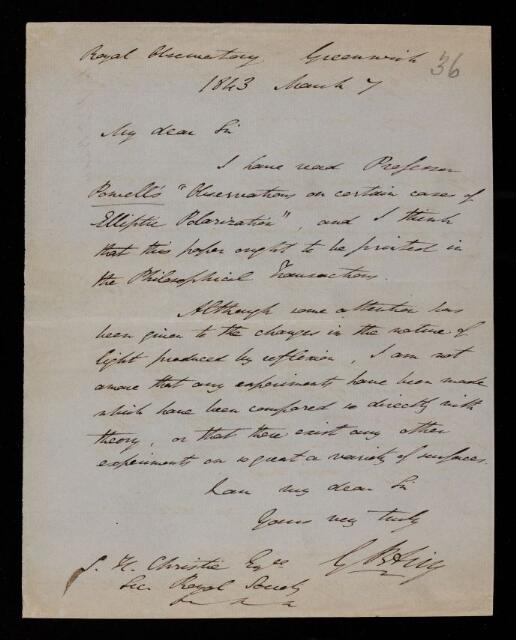 Royal Observatory Greenwich
36
1843 March 7
My dear Sir
I have read Professor
Powell's "Observations on certain cases of
Elliptic Polarization", and I think
that this paper ought to be printed in
the Philosophical Transactions.
Although some attention has
been given to the changes in the nature of
light produced by reflexion, I am not
aware that any experiments have been made
which have been compared so directly with
theory, or that there exist any other
experiments on so great a variety of surfaces.
I am my dear Sir
Yours very truly
G B Airy
S. H. Christie Esqre
Sec. Royal Society